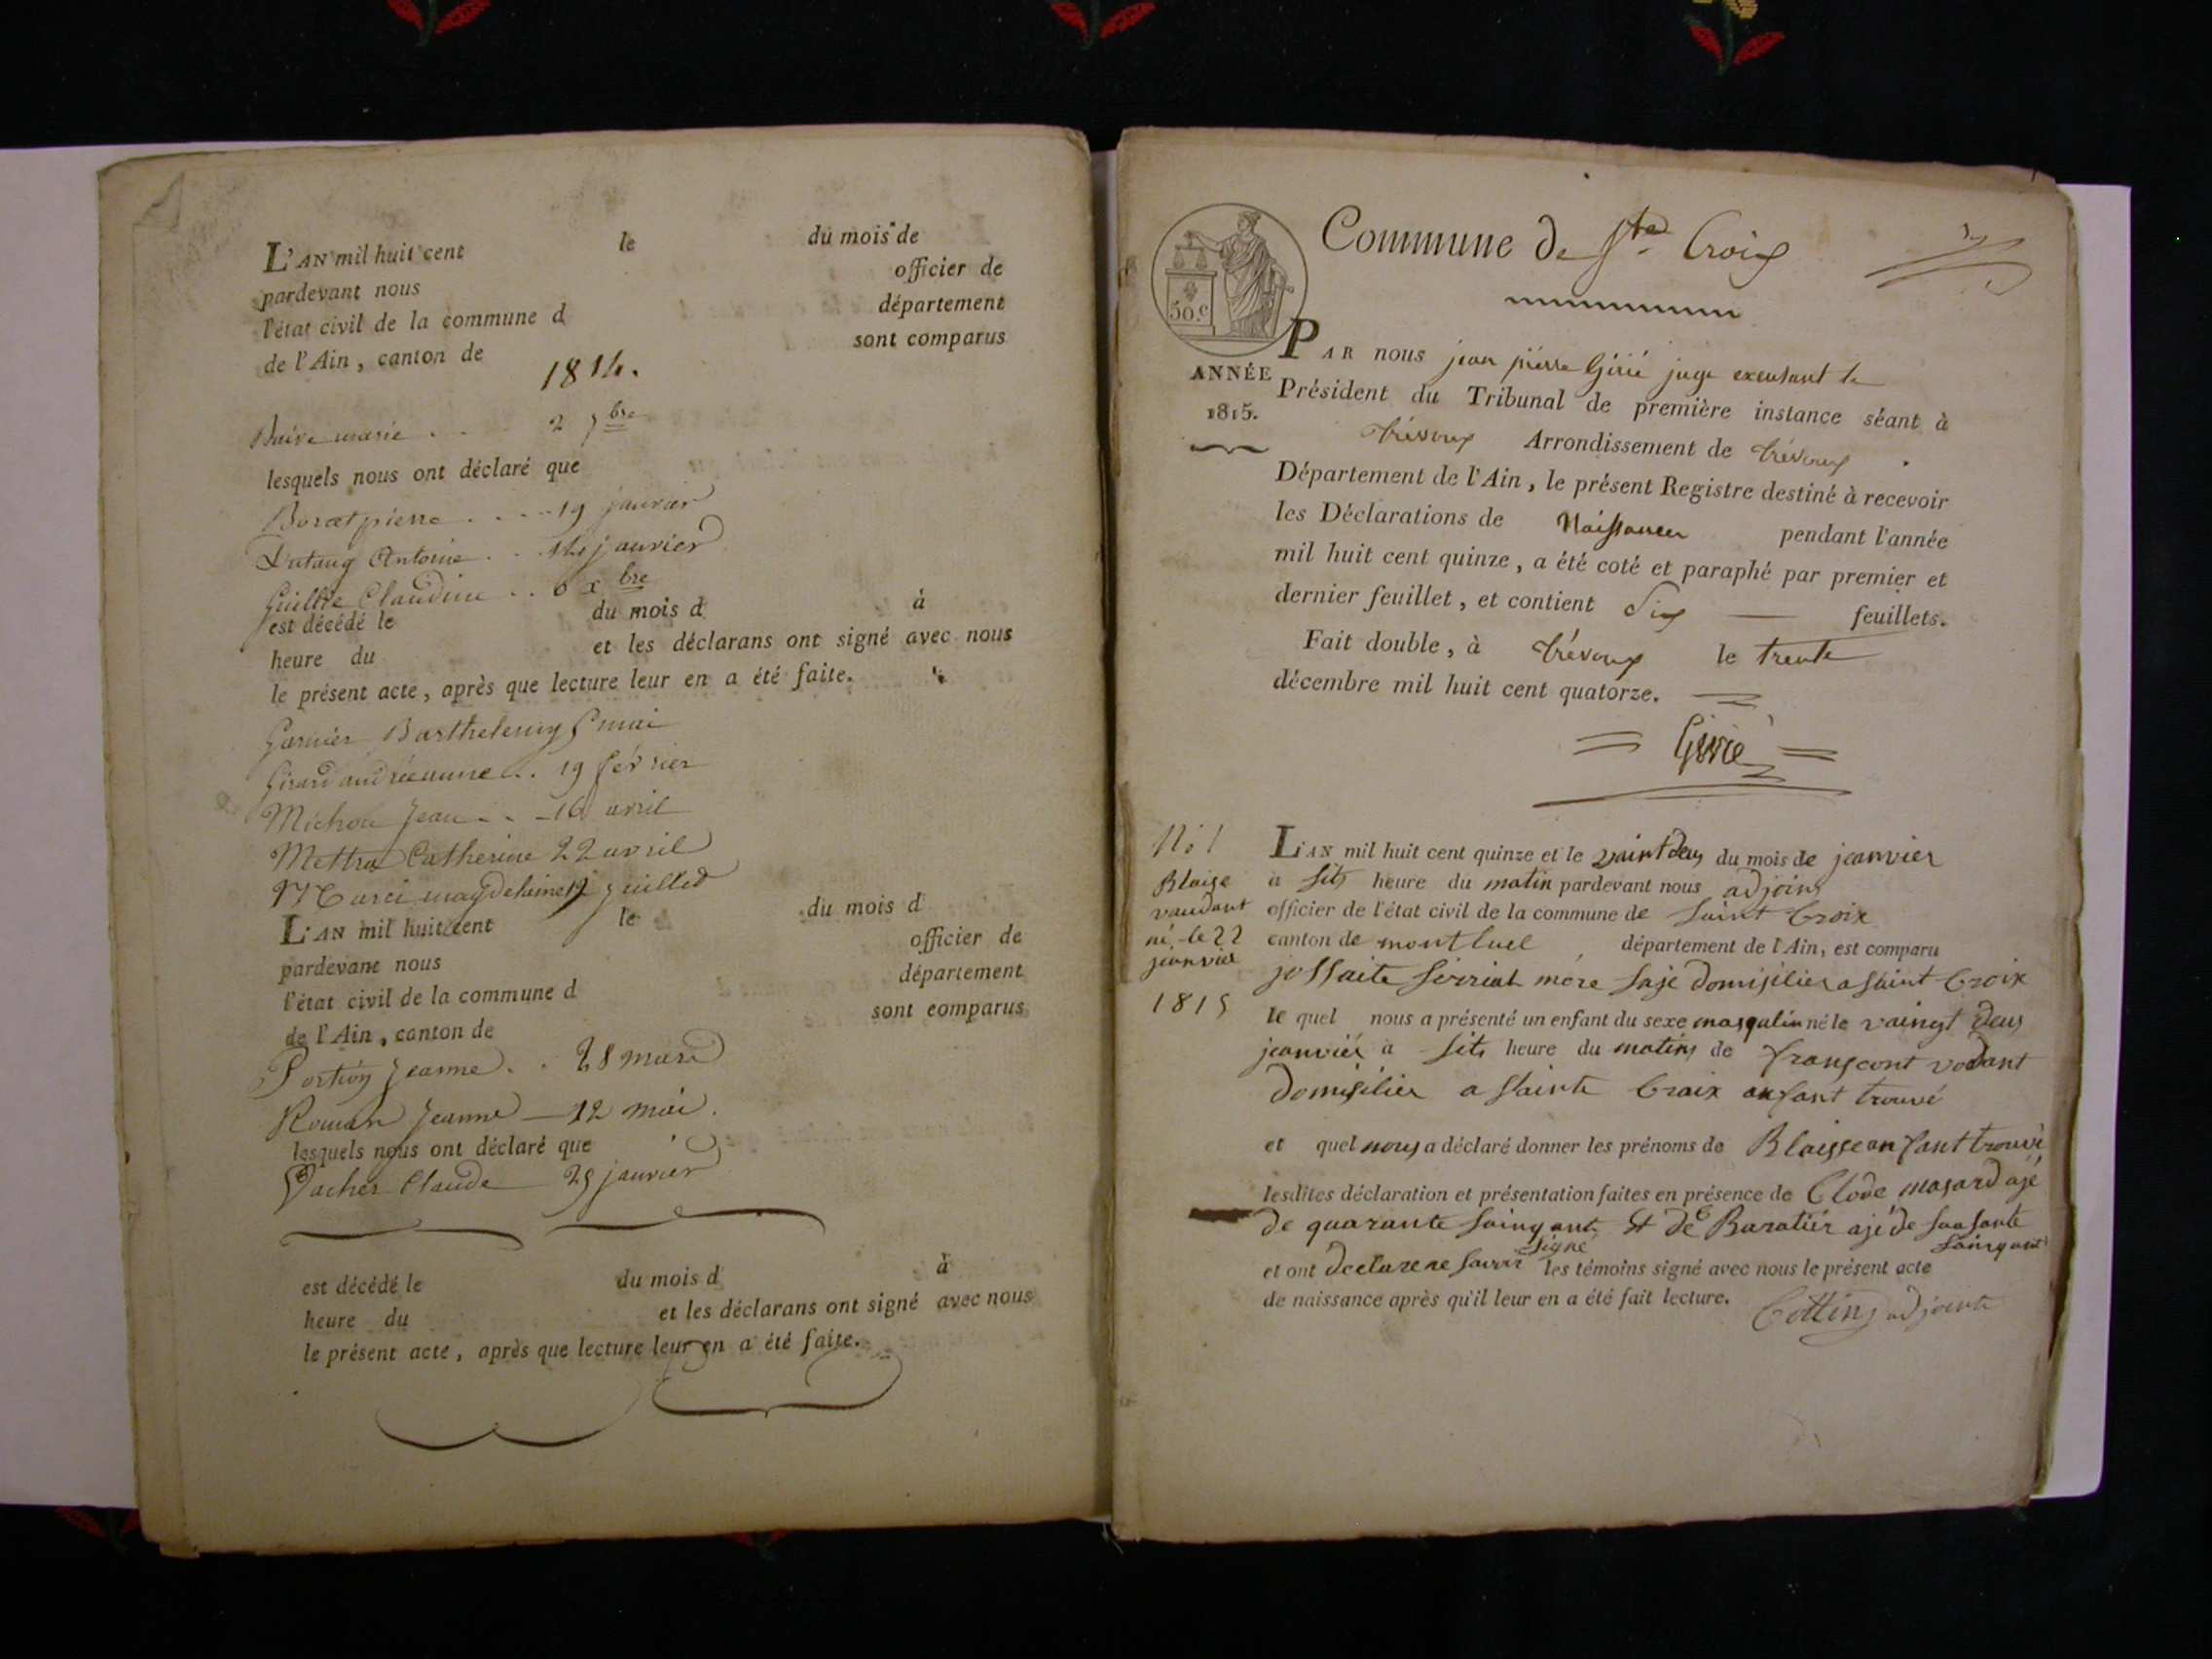 L'AN mil huit cent le du mois de
pardevant nous officier de
l'état civil de la commune d département
de l'Ain, canton de sont comparus
1814.
marie . . 2 7bre
lesquels nous ont déclaré que
pierre . . . . 19 janvier
Antoine . . 14 janvier
Claudine . . 6 xbre
est décédé le du mois d à
heure du et les déclarans ont signé avec nous
le présent acte, après que lecture leur en a été faite.
Garnier Barthelemy mai
Girard andréeanne . . 19 février
Michon Jean . . 16 avril
Mettra Catherine 22 avril
magdelaine juillet
L'AN mil huit cent le du mois d
pardevant nous officier de
l'état civil de la commune d département
de l'Ain, canton de sont comparus
Jeanne . . 28 mars
Roman Jeanne 12 mai.
lesquels nous ont déclaré que
Vacher Claude 25 janvier
est décédé le du mois d à
heure du et les déclarans ont signé avec nous
le présent acte, après que lecture leur en a été faite.
Commune de Ste Croix
50.c
ANNÉE
1815.
PAR nous jean pierre Girié juge exerçant le
Président du Tribunal de première instance séant à
trévoux Arrondissement de trévoux .
Département de l'Ain, le présent Registre destiné à recevoir
les Déclarations de Naissances pendant l'année
mil huit cent quinze, a été coté et paraphé par premier et
dernier feuillet, et contient Six feuillets.
Fait double, à trévoux le trente
décembre mil huit cent quatorze.
Girié
No 1
Blaise
vaudant
né le 22
janvier
1815
L'AN mil huit cent quinze et le vaintdeux du mois de jeanvier
à sits heure du matin pardevant nous adjoint
officier de l'état civil de la commune de saint Croix
canton de montluel département de l'Ain, est comparu
mére saje domisilier a saint Croix
le quel nous a présenté un enfant du sexe masqulin né le vaingt deux
jeanviér à sits heure du matin de vodant
domisilier a sainte Craix anfant trouvé
et quel nous a déclaré donner les prénoms de Blaisse anfant trouvé
lesdites déclaration et présentation faites en présence de Clode masard ajé
de quarante sainq ant et de Baratiér ajé de soasante
sainq ant
signé
et ont declare ne savoir les témoins signé avec nous le présent acte
de naissance après qu'il leur en a été fait lecture.
Cottin adjointe